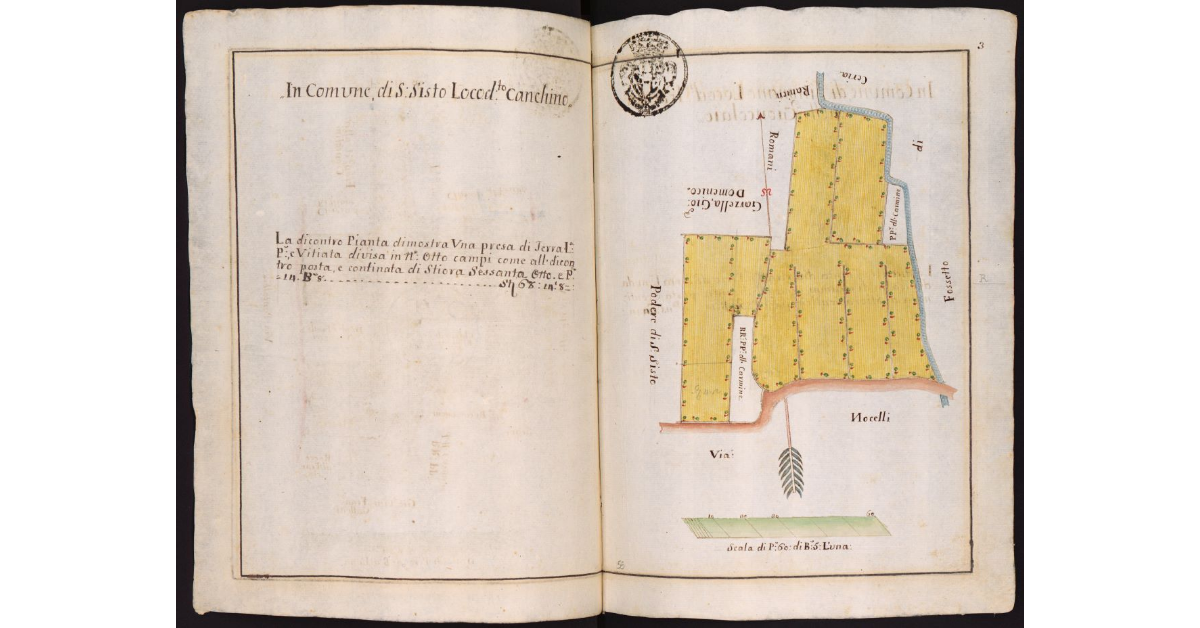 In Comune, di S: Sisto Loced.to Canchino
La dicontro Pianta dimostra Vna presa di Terra L.a
P.a, e Vitiata divisa in N.o Otto campi come all. dicon
tro posta, e continata di Stiora Sessanta Otto. e P.e
14. B.a 8. St 68: 14: 8:
3
Ceria.
Romani
Romani
di
Garzella, Gio:
Domenico.
PP: del Carmine
Fossetto
Podere di S: Sisto
RR: PP: del Carmine
Nocelli
Via:
60
Scala di P.e 60: di B.a 5: L'una: